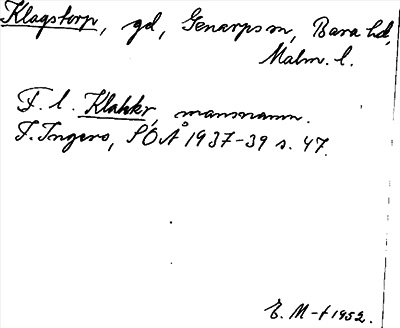 Klagstorp, gd, Genarps sn, Bara hd,
Malm. l.
F. l. Klakkr, mansnamn.
F. Ingers, SOÅ 1937-39 s. 47.
E. M-t 1952.